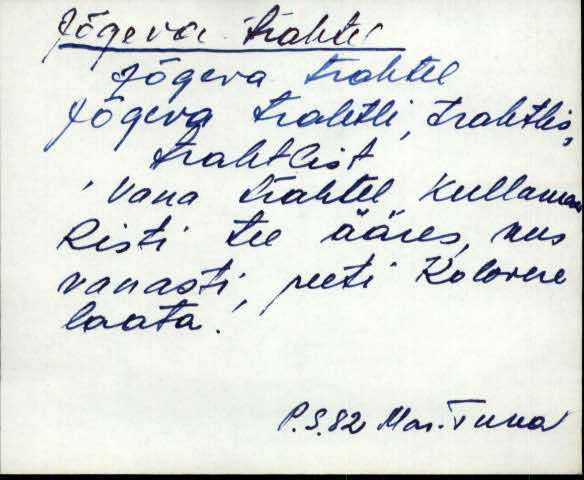 Jõgeva trahtel
Jõgeva trahtel
Jõgeva trahtli, trahtlis,
trahtlist
, vana trahtel Kullamaa
Risti tee ääres, kus
vanasti, peeti Kolovere
laata.'
P.S.82 Mar. Tuna